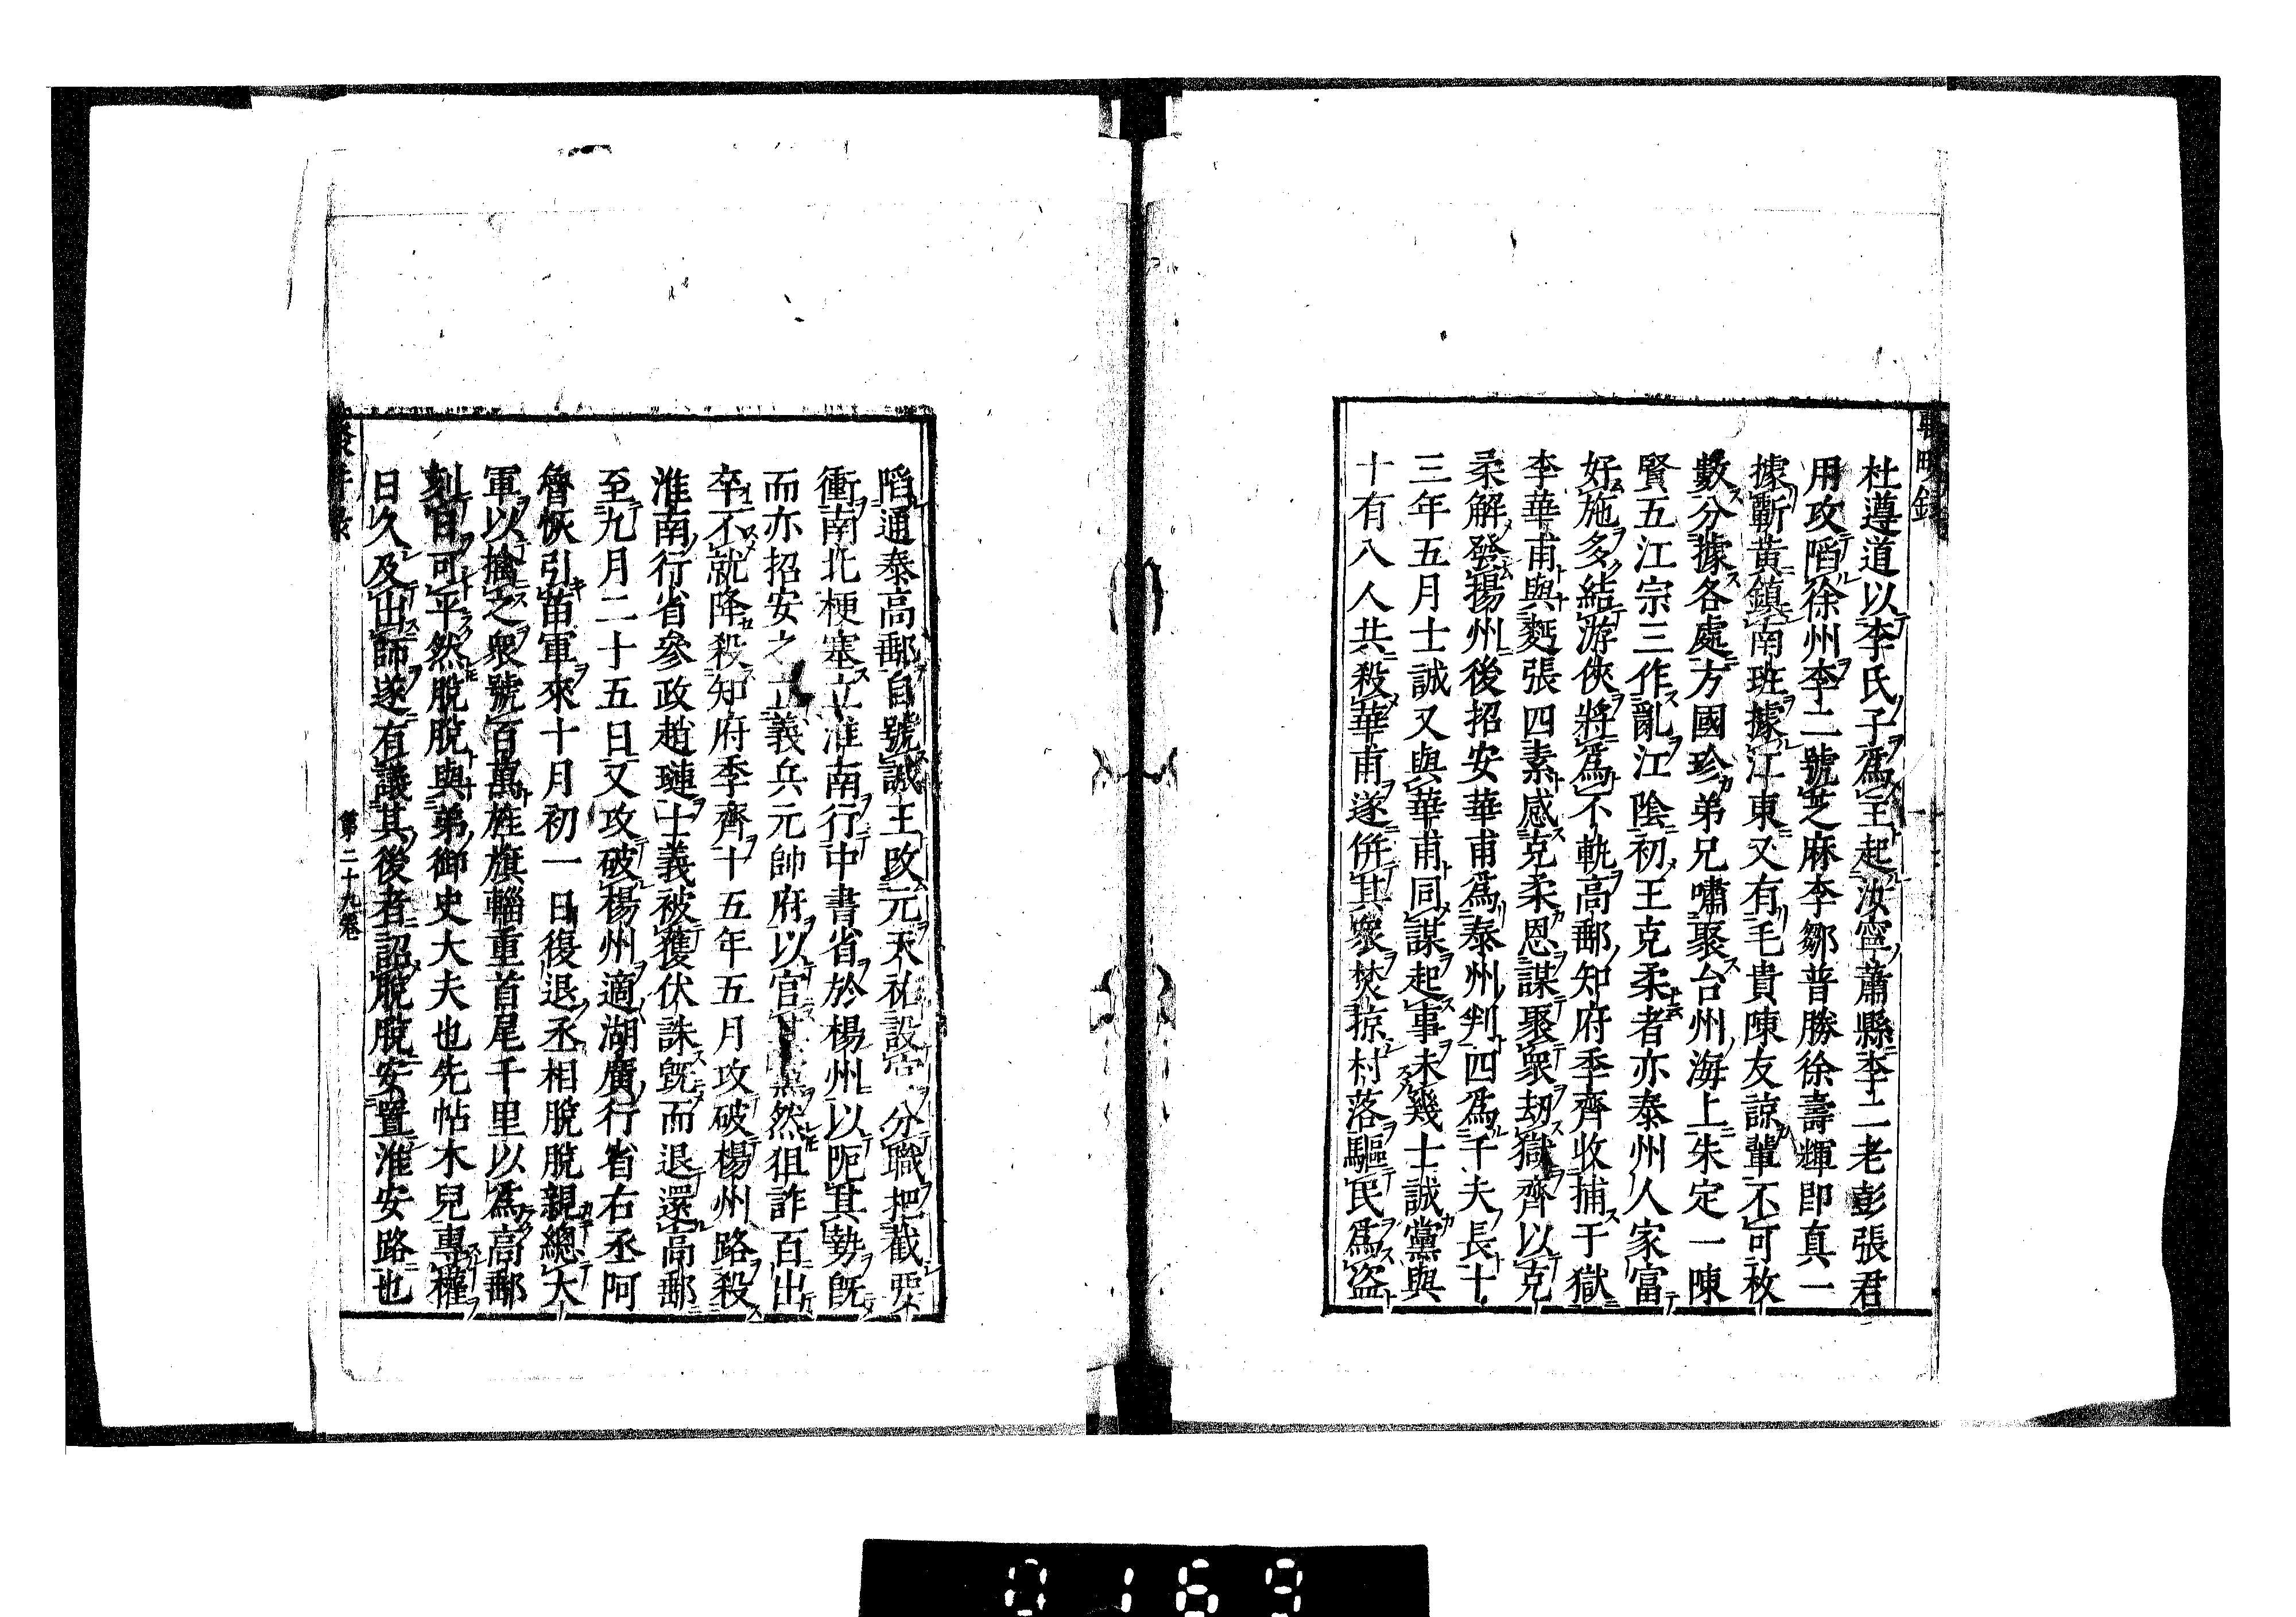 杜遵道以李氏子爲王起汝寧蕭縣李二老彭張君
用攻䧟徐州李二號芝麻李鄒普勝徐壽輝即真一
據蘄黃鎮南班據江東又有毛貴陳友諒輩不可枚
數分據各處方國珍弟兄嘯聚台州海上朱定一陳
賢五江宗三作亂江陰初王克柔者亦泰州人家富
好施多結游俠將爲不軌高郵知府季齊收捕于獄
李華甫與麪張四素感克柔恩謀聚衆劫獄齊以克
柔解發揚州後招安華甫爲泰州判四爲千夫長十
三年五月士誠又與華甫同謀起事未幾士誠黨與
十有八人共殺華甫遂併其衆焚掠村落驅民爲盜
䧟通泰高郵自號誠王改元天祐設官分職把截要
衝南北梗塞立淮南行中書省於楊州以阨其勢旣
而亦招安之立義兵元帥府以官其黨然狙詐百出
卒不就降殺知府季齊十五年五月攻破楊州路殺
淮南行省參政趙璉士義被獲伏誅旣而退還高郵
至九月二十五日又攻破楊州適湖廣行省右丞阿
魯恢引苗軍來十月初一日復退丞相脫脫親總大
軍以擒之衆號百萬旌旗輜重首尾千里以爲高郵
刻日可平然脫脫與弟御史大夫也先帖木兒專權
日久及出師遂有議其後者詔脫脫安置淮安路也
第二十九卷